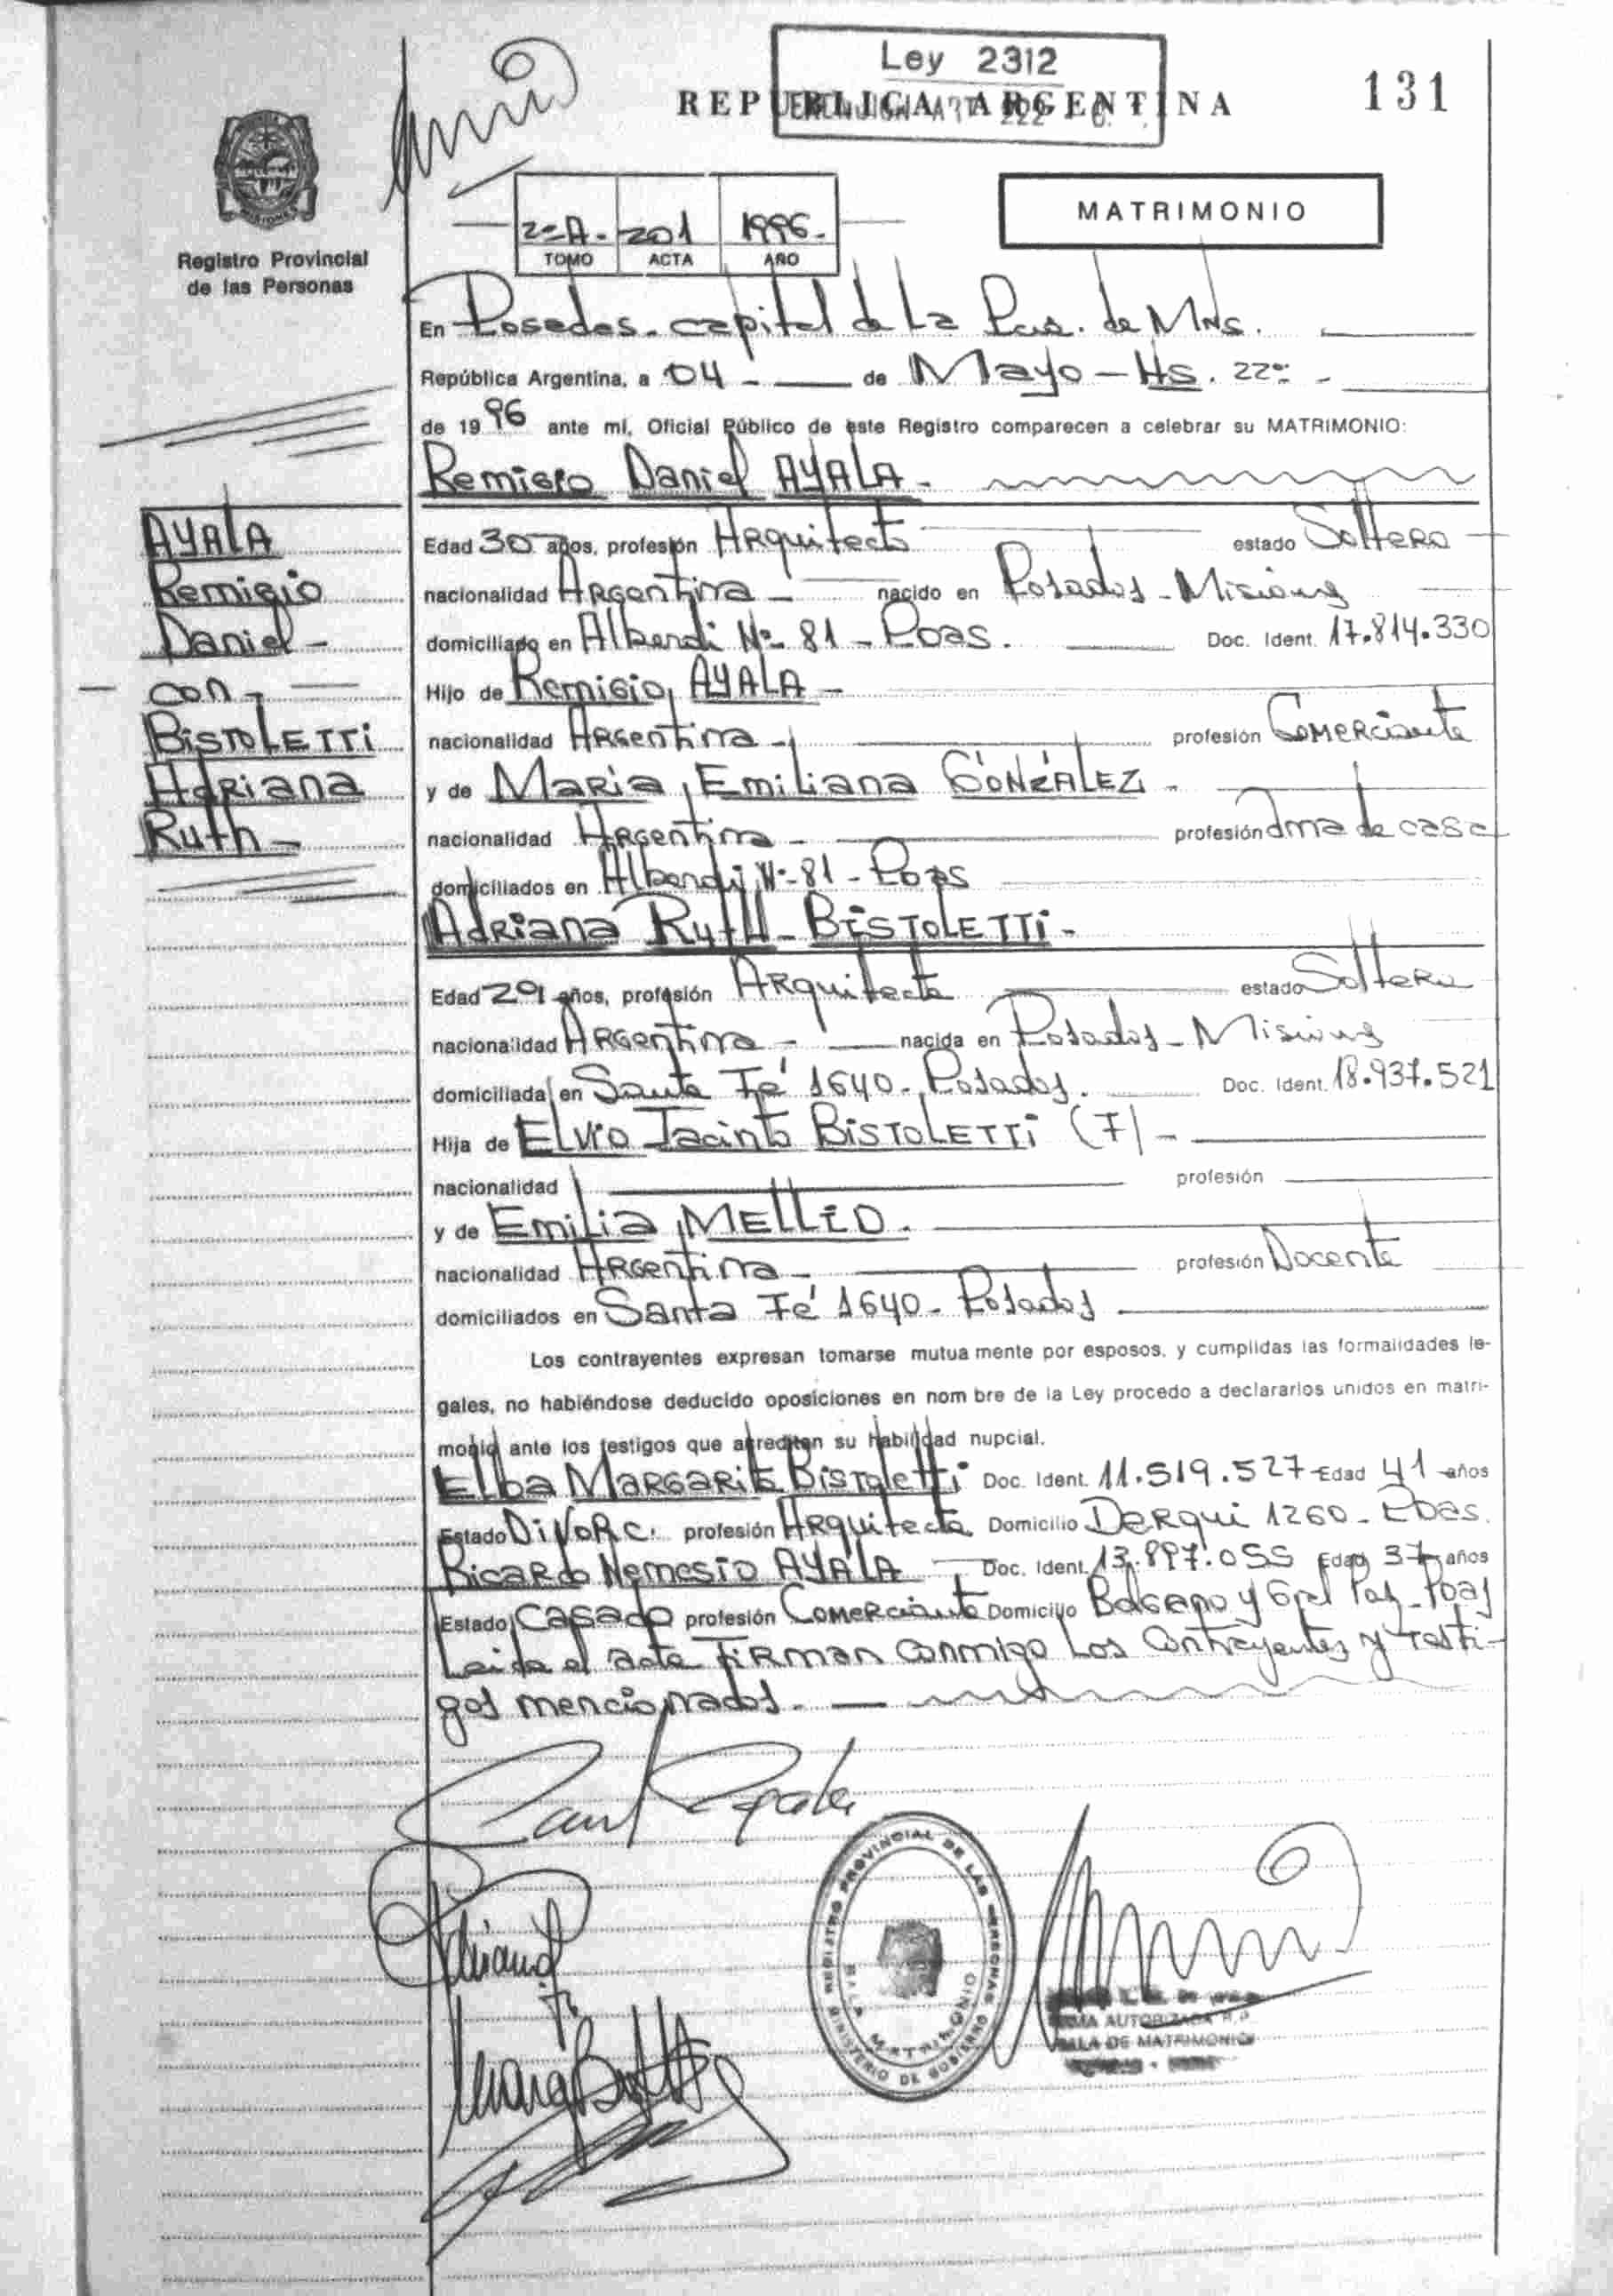 Ley 2312
REPUBLICA ARGENTINA
131
MATRIMONIO
2º A - 201 1996.-
TOMO ACTA AÑO
Registro Provincial
de las Personas
En Posadas. capital de La Pcia. de Mnes.
República Argentina, a 04 - de Mayo - Hs. 22:
de 1996 ante mí, Oficial Público de este Registro comparecen a celebrar su MATRIMONIO:
Remigio Daniel AYALA -
AYALA
Remigio
Daniel -
- con -
BISTOLETTI
Adriana
Ruth -
Edad 30 años, profesión Arquitecto estado Soltero
nacionalidad Argentina - nacido en Posadas - Misiones
domiciliado en Alberdi Nº 81 - Poas. Doc. Ident. 17.814.330
Hijo de Remigio AYALA -
nacionalidad Argentina - profesión Comerciante
y de María Emiliana GONZÁLEZ -
nacionalidad Argentina - profesión ama de casa
domiciliados en Alberdi Nº 81 - Poas
Adriana Ruth - BISTOLETTI -
Edad 29 años, profesión Arquitecta estado Soltera
nacionalidad Argentina - nacida en Posadas - Misiones
domiciliada en Santa Fé 1640 - Posadas. Doc. Ident. 18.937.521
Hija de Elvio Jacinto BISTOLETTI (F) -
nacionalidad profesión
y de Emilia MELLID.
nacionalidad Argentina - profesión Docente
domiciliados en Santa Fé 1640 - Posadas
Los contrayentes expresan tomarse mutua mente por esposos, y cumplidas las formalidades le-
gales, no habiéndose deducido oposiciones en nom bre de la Ley procedo a declararlos unidos en matri-
monio ante los testigos que acrediten su habilidad nupcial.
Elba Margarita Bistoletti Doc. Ident. 11.519.527 Edad 41 años
Estado Divorc. profesión Arquitecta Domicilio Derqui 1260 - Poas.
Ricardo Nemesio AYALA - Doc. Ident. 13.897.055 Edad 37 años
Estado Casado profesión Comerciante Domicilio y Gral Paz - Poas
Leida el acta firman conmigo Los Contrayentes y Testi-
gos mencionados. -
REGISTRO PROVINCIAL DE LAS PERSONAS
MINISTERIO DE GOBIERNO
SALA MATRIMONIO
FIRMA AUTORIZADA R.P.
SALA DE MATRIMONIOS